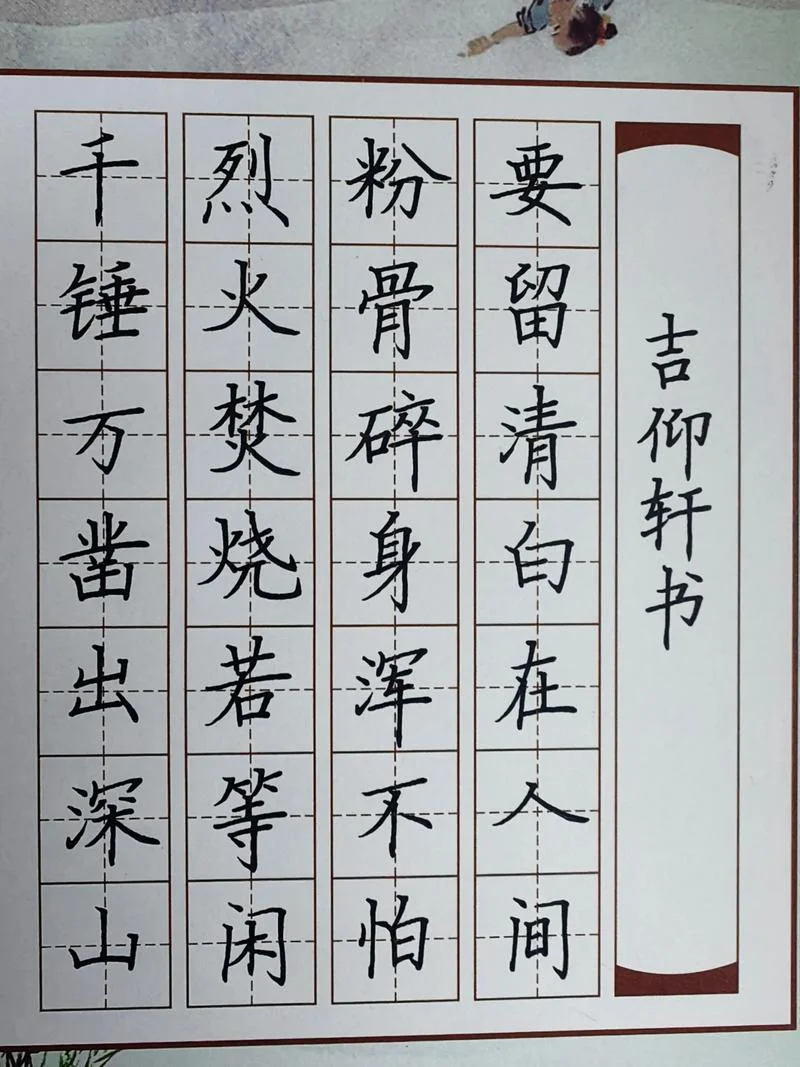 千锤万凿出深山
烈火焚烧若等闲
粉骨碎身浑不怕
要留清白在人间
吉仰轩书